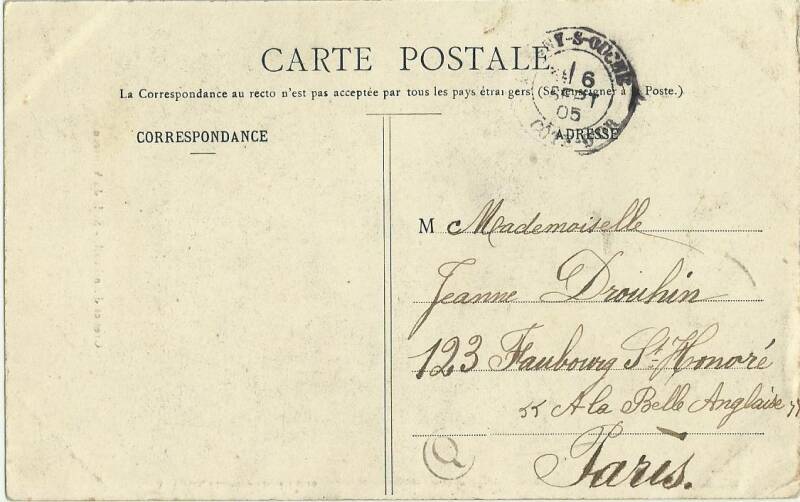 CARTE POSTALE
La Correspondance au recto n'est pas acceptée par tous les pays étrangers. (Se renseigner à la Poste.)
CORRESPONDANCE
ADRESSE
6
SEPT
05
CÔTE-D'OR
M Mademoiselle
Jeanne Drouhin
123 Faubourg St-Honoré
" A la Belle Anglaise "
Paris.